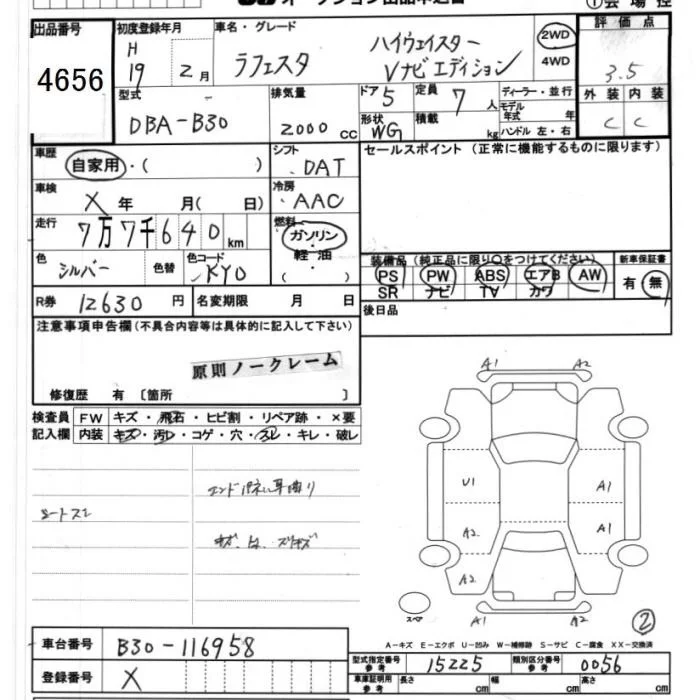 出品番号 4656
初度登録年月 H 19 2月
車名・グレード ラフェスタ ハイウェイスター Vナビエディション
2WD
4WD
評価点 3.5
外装 内装
C C
型式 DBA-B30
排気量 2000 cc
ドア 5
定員 7 人
形状 WG
積載 kg
ディーラー・並行
モデル年式 年
ハンドル 左・右
車歴 自家用・( )
シフト DAT
セールスポイント (正常に機能するものに限ります)
車検 X 年 月( 日)
冷房 AAC
走行 7万7千640km
燃料 ガソリン・軽油・( )
色 シルバー 色替
色コード KY0
装備品 (純正品に限り○をつけてください)
新車保証書
PS PW ABS エアB AW
有・無
SR ナビ TV カワ
R券 12630 円
名変期限 月 日
後日品
注意事項申告欄 (不具合内容等は具体的に記入して下さい)
原則ノークレーム
修復歴 有 〔箇所 〕
検査員 FW キズ・飛石・ヒビ割・リペア跡・×要
記入欄 内装 キズ・汚レ・コゲ・穴・スレ・キレ・破レ
A1 A2
U1 A1
A2 A1
A2
スペア
A1 A2
2
A-キズ E-エクボ U-凹み W-補修跡 S-サビ C-腐食 XX-交換済
車台番号 B30-116958
登録番号 X
型式指定番号 参考 15225
類別区分番号 参考 0056
車庫証明用 参考 長さ cm 幅 cm 高さ cm